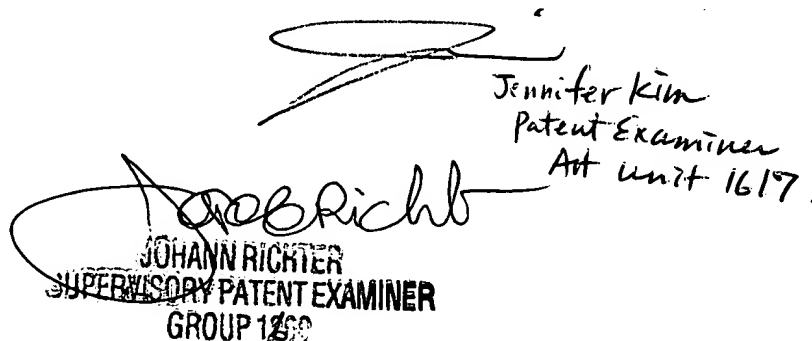 Jennifer Kim
Patent Examiner
Art unit 1617
JOHANN RICHTER
SUPERVISORY PATENT EXAMINER
GROUP